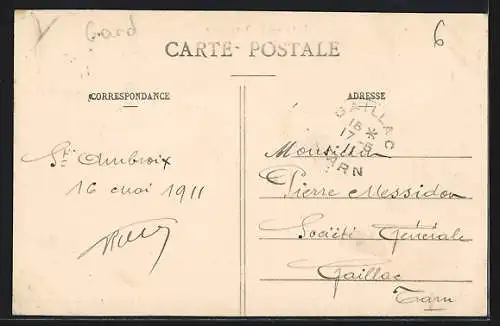 Gard
6
CARTE POSTALE
CORRESPONDANCE
ADRESSE
GAILLAC
18 *
17 - 5
TARN
St Ambroix
16 mai 1911
Monsieur
Pierre Messidor
Société Générale
Gaillac
Tarn